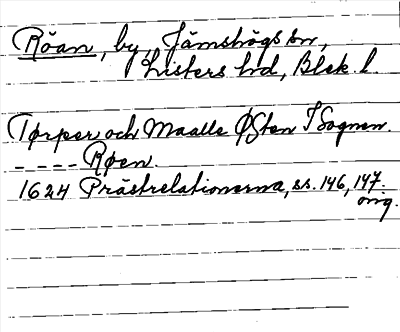 Röan, by, Jämshögs sn,
Listers hd, Blek l.
Tørper och Maalle Østen I Sognen.
- - - - Røen.
1624 Prästrelationerna, ss. 146, 147.
orig.